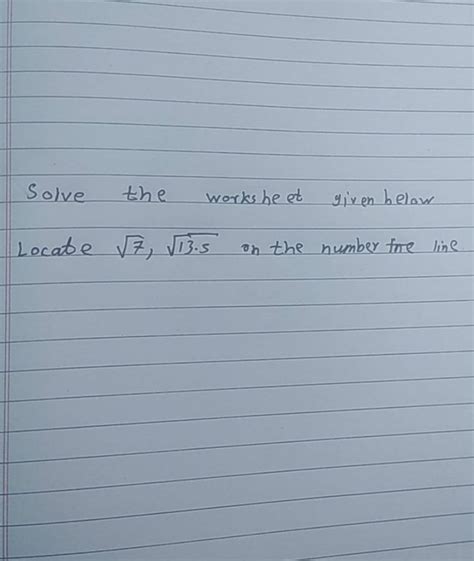 Solve the worksheet given below
Locate √7, √13.5 on the number line